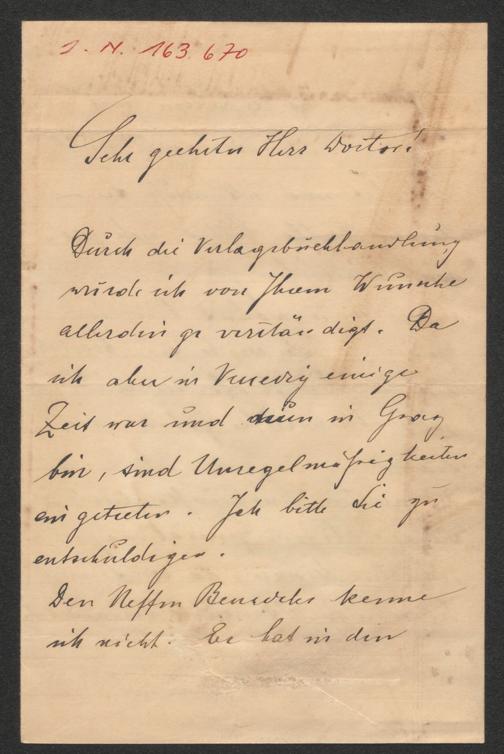 J. N. 163.670
Sehr geehrter Herr Doctor!
Durch die Verlagsbuchhandlung
wurde ich von Ihrem Wunsche
allerdings verständigt. Da
ich aber in Venedig einige
Zeit war und nun in Graz
bin, sind Unregelmäßigkeiten
eingetreten. Ich bitte Sie zu
entschuldigen.
Den Neffen Benedeks kenne
ich nicht. Er hat in den